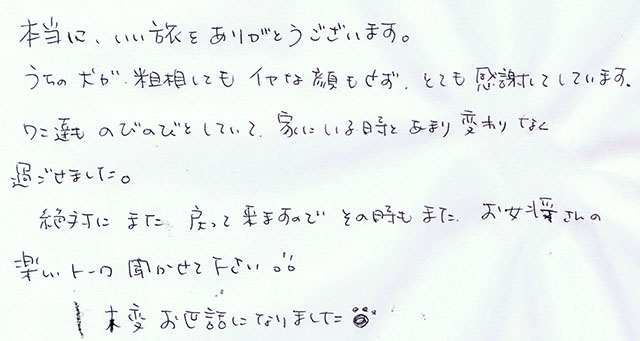 本当に、いい旅をありがとうございます。
うちの犬が、粗相しても イヤな顔もせず、とても感謝してしています。
ワン達も のびのびとしていて、家にいる時とあまり変わりなく
過ごせました。
絶対に また 戻って来ますので その時もまた、お女将さんの
楽しいトーク聞かせて下さい
大変 お世話になりました